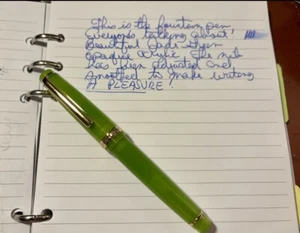 This is the fountain pen
everyones talking about!
Beautiful Jade
The nib
has been adjusted and
smoothed to make writing
A PLEASURE!